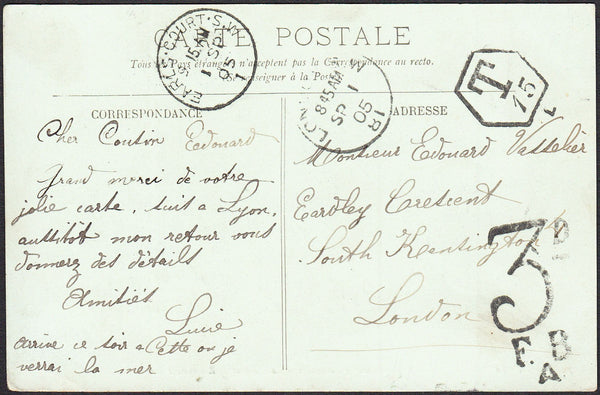 CARTE POSTALE
Tous les Pays étrangers n'acceptent pas la Correspondance au recto.
(Se renseigner à la Poste)
EARL'S COURT·S.W.
9.15 AM
SP 1
05
8 45 AM
SP 1
05
T
15
L
CORRESPONDANCE
ADRESSE
Cher Cousin Edouard
Grand merci de votre
jolie carte, suis a Lyon,
aussitot mon retour vous
donnerez des détails
Amitiés
Lucie
arrive ce soir a Cette ou je
verrai la mer
Monsieur Edouard Vasselier
Eardley Crescent
South Kensington
London
3D
F.B
A